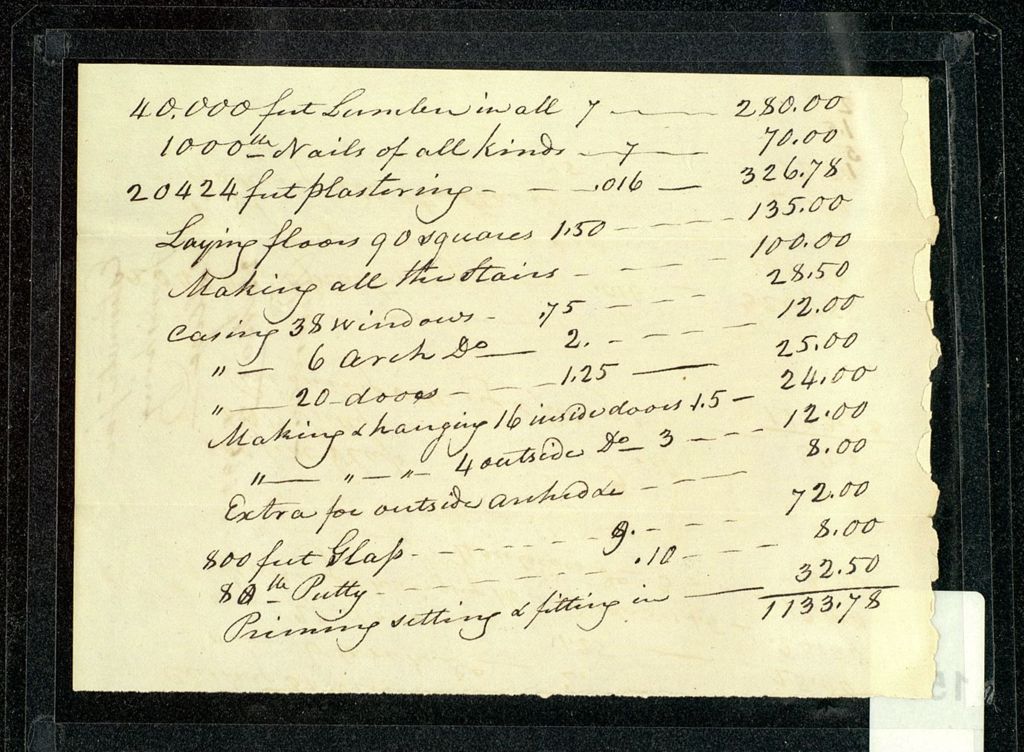 40.000 feet Lumber in all 7 — 280.00
1000 lb Nails of all kinds — 7 — 70.00
20424 feet plastering - - .016 — 326.78
Laying floors 90 squares 1.50 - - - 135.00
Making all the Stairs - - - - 100.00
Casing 38 windows - .75 - - - 28.50
" — 6 arch Do — 2. - - - 12.00
" — 20 doors - - 1.25 — 25.00
Making & hanging 16 inside doors 1.5 - 24.00
" — " — " 4 outside Do 3 - - - 12.00
Extra for outside arched do - - — 8.00
800 feet Glass - - - - - 9. - - - 72.00
80 lb Putty - - - - - .10 - - - 8.00
Priming setting & fitting in — 32.50
1133.78
15